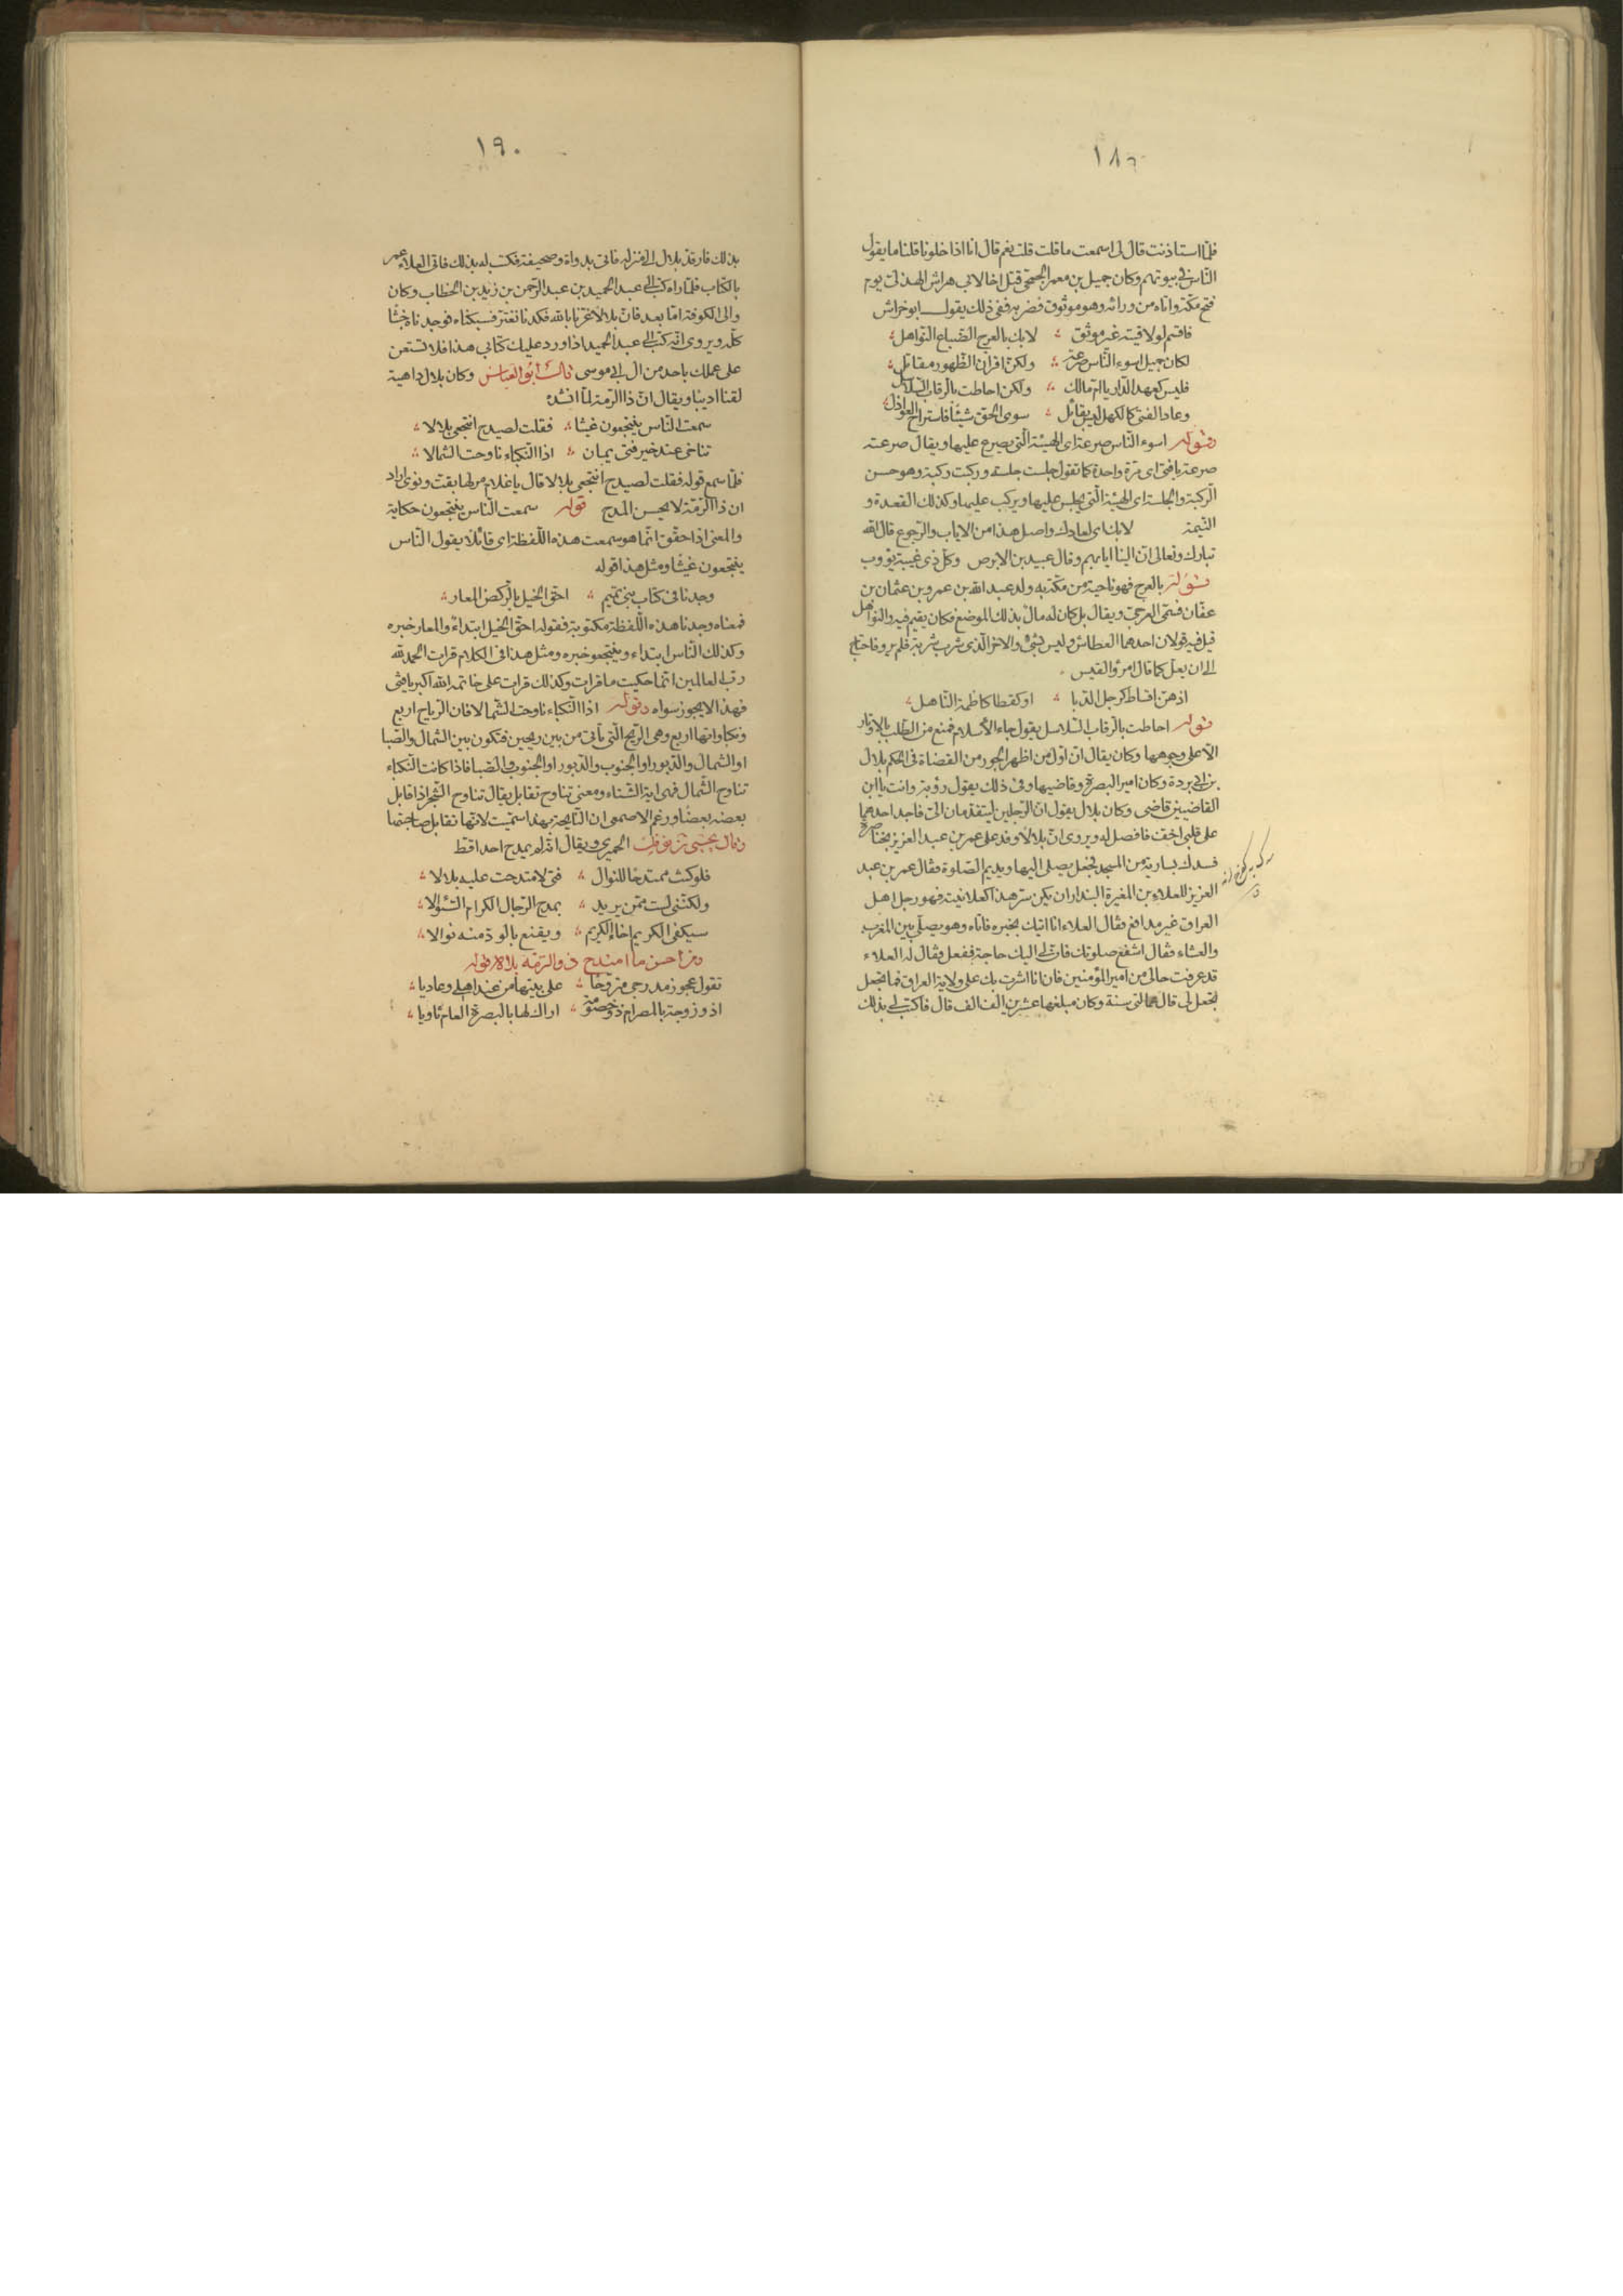 ١٨٩
فلمّا استاذنت قال لى اسمعت ما قلت قلت نعم قال انا اذا خلونا قلنا ما يقول
النّاس فى بيوتهم وكان جميل بن معمر الجمحى قتل اخا لابى هراش الهذلى يوم
فتح مكّة واتاه من ورائه وهو موثوق فضربه ففى ذلك يقول ابو خراش
فاقسم لو لاقيته غير موثق لابك بالعرج الضباع النّواهل
لكان جميل اسوء النّاس صرعة ولكنّ اقران الظّهور مقاتل
فليس كعهد الدّار يا امّ مالك ولكن احاطت بالرّقاب السّلاسل
وعاد الفتى كالكهل ليس بقائل سوى الحق شيئًا فاستراح العواذل
وقوله اسوء النّاس صرعة اى الهيئة الّتى يصرع عليها ويقال صرعته
صرعة يا فتى اى مرّة واحدة كما تقول جلست جلسة وركبت ركبة وهو حسن
الرّكبة والجلسة اى الهيئة الّتى يجلس عليها ويركب عليها وكذلك القعدة و
النّيمة لابك اى لعادك واصل هذا من الاياب والرّجوع قال الله
تبارك وتعالى انّ الينا ايابهم وقال عبيد بن الابرص وكلّ ذى غيبة يؤوب
قوله بالعرج فهو ناحية من مكّة به ولد عبد الله بن عمرو بن عثمان بن
عفّان فسمّى العرجىّ ويقال بل كان له مال بذلك الموضع فكان يقيم فيه والنّواهل
قيل فيه قولان احدهما العطاش وليس بشىء والاخر الّذى شرب شربة فلم يرو فاحتاج
الى ان يعلّ كما قال امرؤ القيس
اذ هنّ اقساط كرجل الدّبا او كقطا كاظمة النّاهل
قوله احاطت بالرّقاب السّلاسل يقول جاء الأسلام فمنع من الطّلب بالاوتار
الّا على وجهها وكان يقال انّ اوّل من اظهر الجور من القضاة فى الحكم بلال
بن ابى بردة وكان امير البصرة وقاضيها وفى ذلك يقول رؤبة وانت يا ابن
القاضيين قاضى وكان بلال يقول انّ الرّجلين ليتقدّمان الىّ فاجد احدهما
على قلبى اخفّ فاقضى له ويروى انّ بلالا وفد على عمر بن عبد العزيز بخناصرة
فسدك بسارية من المسجد فجعل يصلى اليها ويديم الصّلوة فقال عمر بن عبد
العزيز للعلاء بن المغيرة البندار ان يكن سرّ هذا كعلانيته فهو رجل اهل
العراق غير مدافع فقال العلاء انا اتيك بخبره فاتاه وهو يصلّى بين المغرب
والعشاء فقال اشفع صلوتك فانّ لى اليك حاجة ففعل فقال له العلاء
قد عرفت حالى من امير المؤمنين فان انا اشرت بك على ولاية العراق فما تجعل
لى قال عمالتى سنة وكان مبلغها عشرين الف الف قال فاكتب لى بذلك
١٩٠
بذلك فارقد بلال الى منزله فاتى بدواة وصحيفة فكتب له بذلك فاتى العلاء عمر
بالكتاب فلمّا راه كتب الى عبد الحميد بن عبد الرّحمن بن زيد بن الخطاب وكان
والى الكوفة امّا بعد فانّ بلالا غرّنا بالله فكدنا نغترّ فسبكناه فوجدناه خبثًا
كلّه ويروى انّه كتب الى عبد الحميد اذا ورد عليك كتابى هذا فلا تستعن
على عملك باحد من ال ابى موسى قال ابو العباس وكان بلال داهية
لقنا اديبا ويقال انّ ذا الرّمة لمّا انشده
سمعت النّاس ينتجعون غيثا فقلت لصيدح انتجعى بلالا
تناخى عند خير فتى يمان اذا النّكباء ناوحت الشّمالا
فلمّا سمع قوله فقلت لصيدح انتجعى بلالا قال يا غلام مر لها بقتّ ونوى اراد
انّ ذا الرّمّة لا يحسن المدح قوله سمعت النّاس ينتجعون حكاية
والمعنى اذا حقّق انّما هو سمعت هذه اللّفظة اى قائلا يقول النّاس
ينتجعون غيثًا ومثل هذا قوله
وجدنا فى كتاب بنى تميم احقّ الخيل بالرّكض المعار
فمعناه وجدنا هذه اللّفظة مكتوبة فقوله احقّ الخيل ابتداء والمعار خبره
وكذلك النّاس ابتداء وينتجعو خبره ومثل هذا فى الكلام قرات الحمد لله
ربّ العالمين انّما حكيت ما قرات وكذلك قرات على خاتمه الله اكبر يا فتى
فهذا لا يجوز سواه وقوله اذا النّكباء ناوحت الشّمالا فانّ الرّياح اربع
ونكباواتها اربع وهى الرّيح الّتى تأتى من بين ريحين فتكون بين الشّمال والصّبا
او الشّمال والدّبور او الجنوب والدّبور او الجنوب والصّبا فاذا كانت النّكباء
تناوح الشّمال فهى اية الشّتاء ومعنى تناوح تقابل يقال تناوح الشّجر اذا قابل
بعضه بعضا وزعم الاصمعى انّ النّايحة بهذا سمّيت لانّها تقابل صاحبتها
وقال يحيى بن نوفل الحميرى ويقال انّه لم يمدح احدا قطّ
فلو كنت ممتدحا للنّوال فتى لامتدحت عليه بلالا
ولكنّنى لست ممّن يريد بمدح الرّجال الكرام السّؤالا
سيكفى الكريم اخاء الكريم ويقنع بالودّ منه نوالا
ومن احسن ما امتدح ذو الرّمّة بلالا قوله
تقول عجوز مدرجى متروّحًا على بيتها من عند اهلى وغاديا
اذو زوجة بالمصر ام ذو خصومة اراك لها بالبصرة العام ثاويا